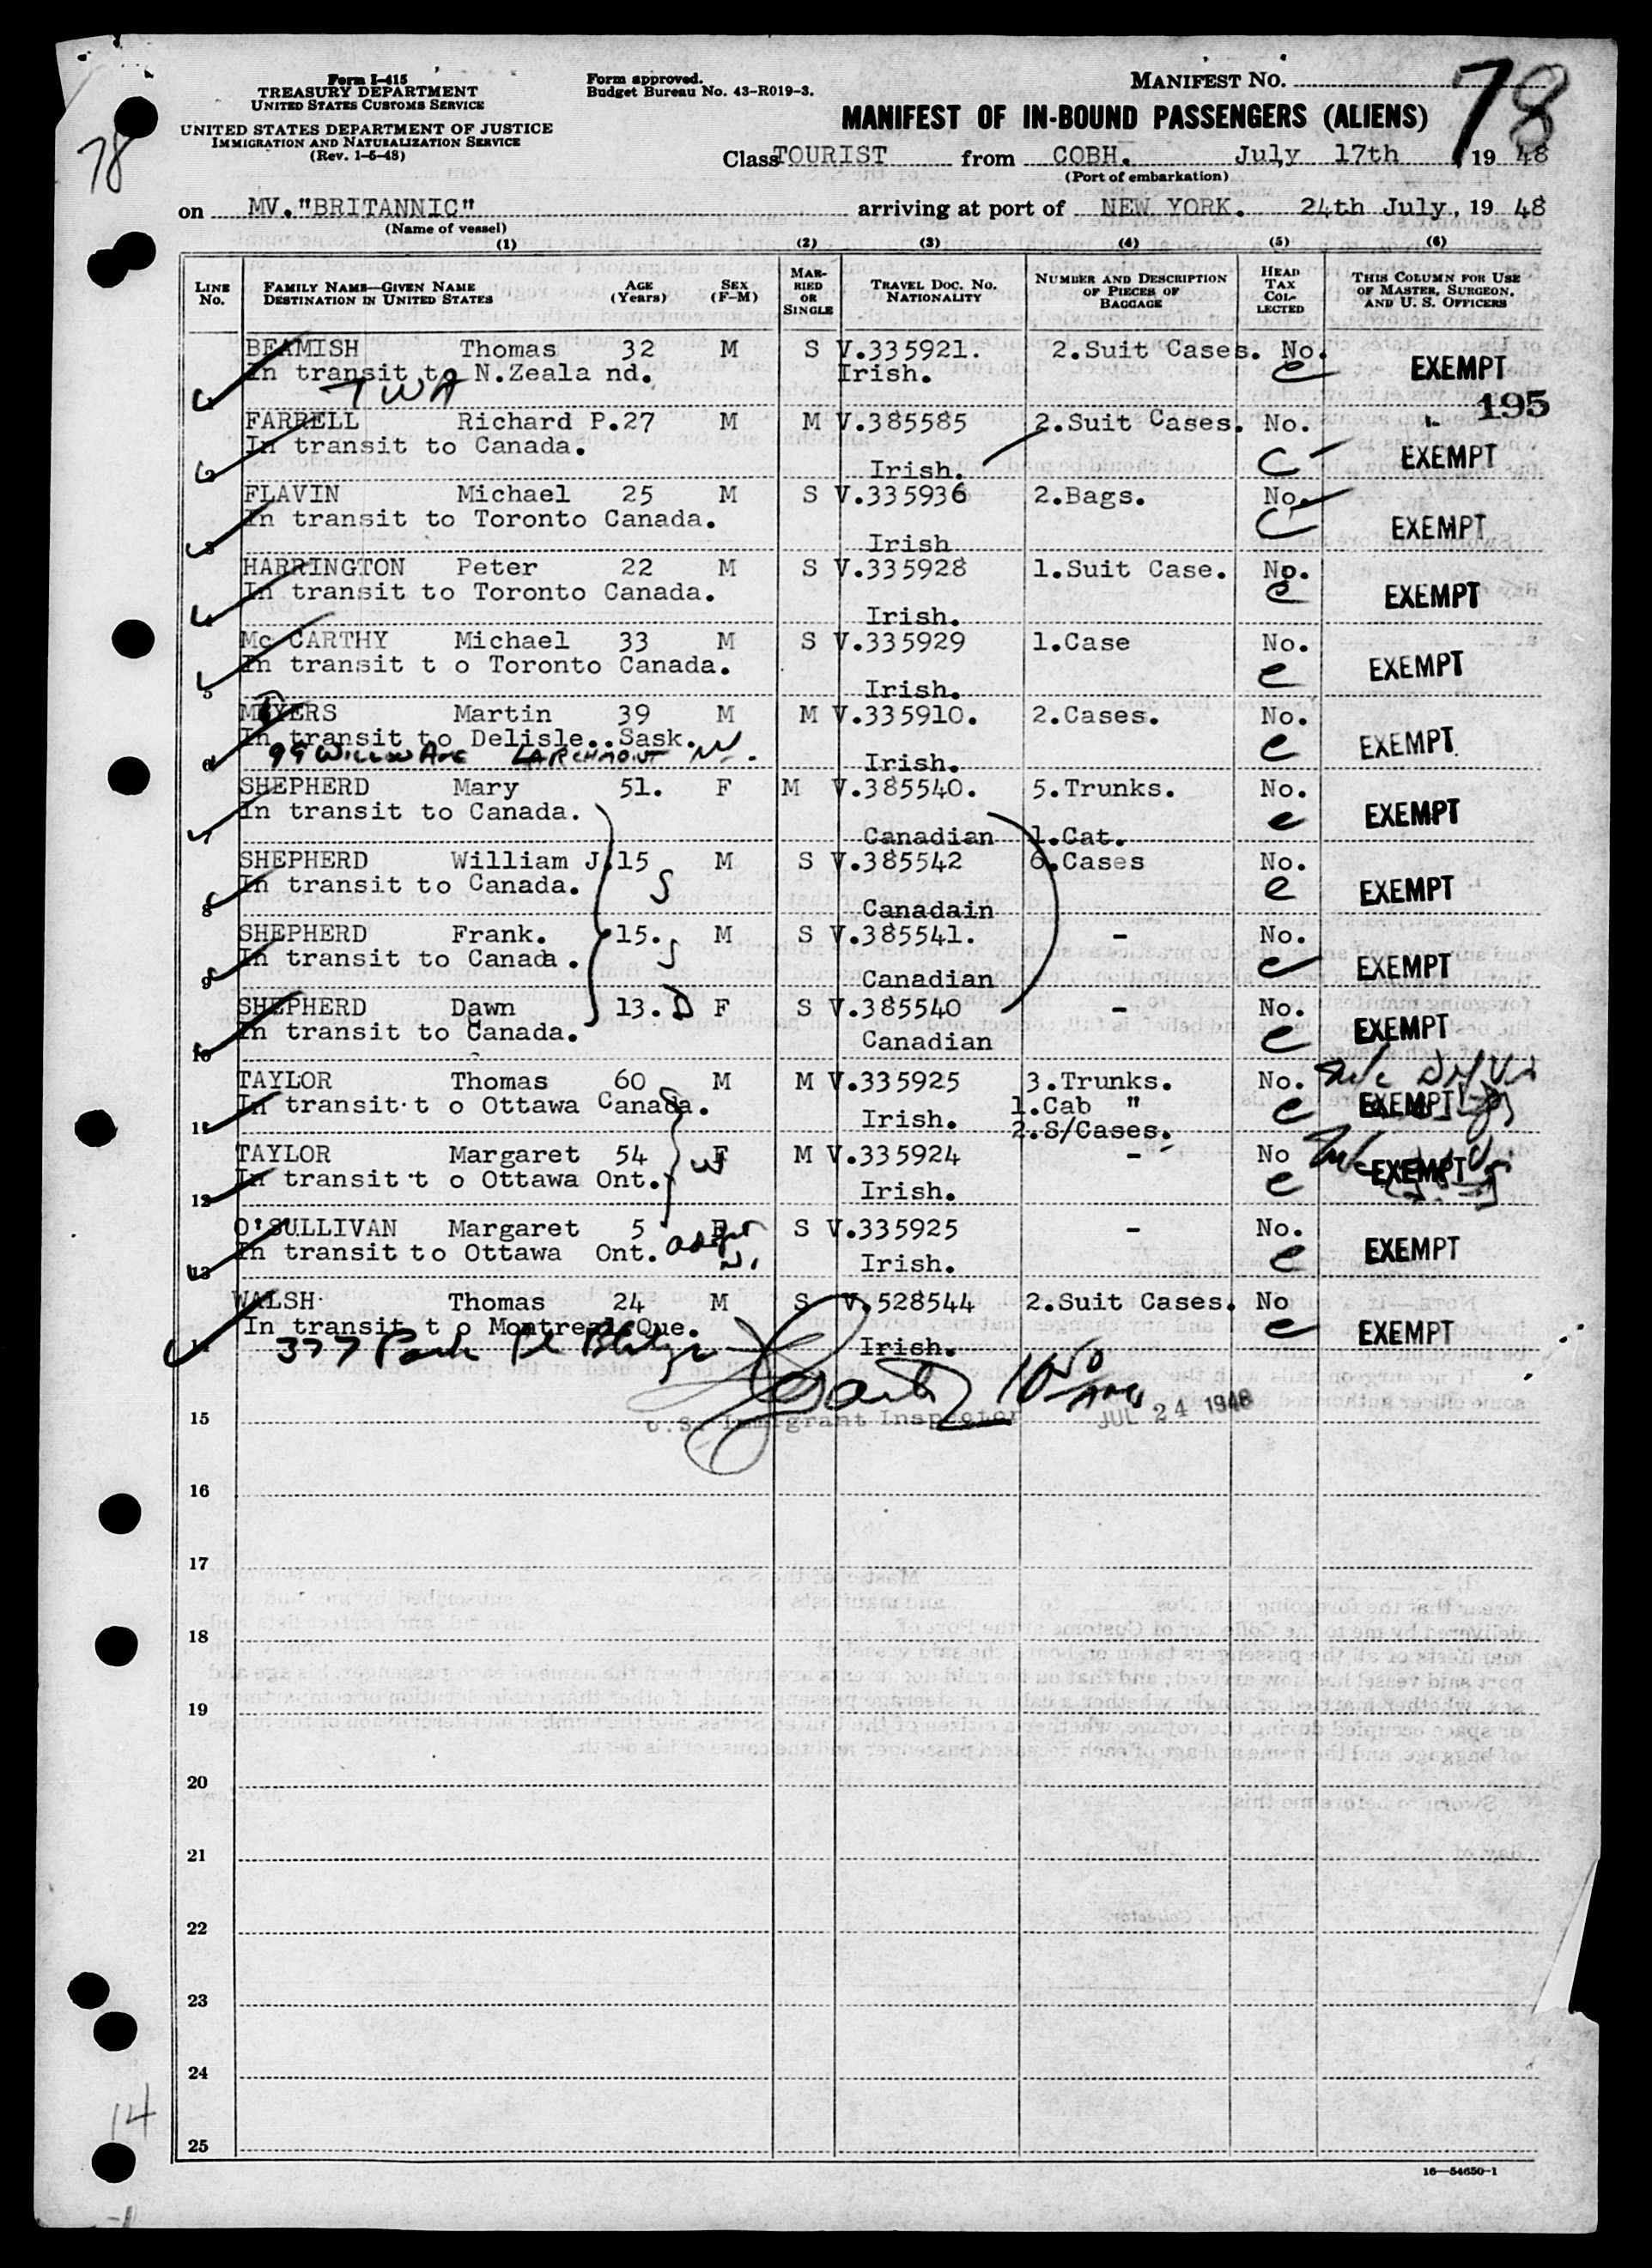 Form I-415
TREASURY DEPARTMENT
UNITED STATES CUSTOMS SERVICE
UNITED STATES DEPARTMENT OF JUSTICE
IMMIGRATION AND NATURALIZATION SERVICE
(Rev. 1-5-48)
Form approved.
Budget Bureau No. 43-R019-3.
MANIFEST NO. 78
78
MANIFEST OF IN-BOUND PASSENGERS (ALIENS)
Class TOURIST from COBH. July 17th, 19 48
(Port of embarkation)
on MV."BRITANNIC" arriving at port of NEW YORK. 24th July, 19 48
(Name of vessel)
(1) (2) (3) (4) (5) (6)
LINE No. FAMILY NAME—GIVEN NAME DESTINATION IN UNITED STATES AGE (Years) SEX (F-M) MARRIED OR SINGLE TRAVEL DOC. NO. NATIONALITY NUMBER AND DESCRIPTION OF PIECES OF BAGGAGE HEAD TAX COLLECTED THIS COLUMN FOR USE OF MASTER, SURGEON, AND U. S. OFFICERS
BEAMISH Thomas 32 M S V.335921. 2.Suit Cases. No. EXEMPT
In transit to N.Zeala nd. Irish.
TWA
195
FARRELL Richard P. 27 M M V.385585 2.Suit Cases. No.
In transit to Canada. Irish. EXEMPT
FLAVIN Michael 25 M S V.335936 2.Bags. No.
In transit to Toronto Canada. Irish EXEMPT
3
HARRINGTON Peter 22 M S V.335928 1.Suit Case. No.
In transit to Toronto Canada. Irish. EXEMPT
4
Mc CARTHY Michael 33 M S V.335929 1.Case No.
In transit t o Toronto Canada. Irish. EXEMPT
5
MEYERS Martin 39 M M V.335910. 2.Cases. No.
In transit to Delisle..Sask. Irish. EXEMPT
99 WILLOW AVE LARCHMONT N.
6
SHEPHERD Mary 51. F M V.385540. 5.Trunks. No.
In transit to Canada. EXEMPT
7 Canadian 1.Cat.
SHEPHERD William J. 15 M S V.385542 6.Cases No.
In transit to Canada. S EXEMPT
8 Canadain
SHEPHERD Frank. 15. S M S V.385541. - No.
In transit to Canada . EXEMPT
9 Canadian
SHEPHERD Dawn 13. D F S V.385540 - No.
In transit to Canada. Canadian EXEMPT
10
TAYLOR Thomas 60 M M V.335925 3.Trunks. No.
In transit t o Ottawa Canada. Irish. 1.Cab " EXEMPT
11 2.S/Cases.
TAYLOR Margaret 54 F M V.335924 - No
In transit t o Ottawa Ont. W Irish. EXEMPT
12
O'SULLIVAN Margaret 5 F S V.335925 - No.
In transit to Ottawa Ont. Irish. EXEMPT
13
WALSH Thomas 24 M S V.528544 2.Suit Cases. No
In transit t o Montreal Que. Irish. EXEMPT
377 Park Pl Bklyn
U.S. Immigrant Inspector JUL 24 1948
15
16
17
18
19
20
21
22
23
24
25
14
16—54650-1